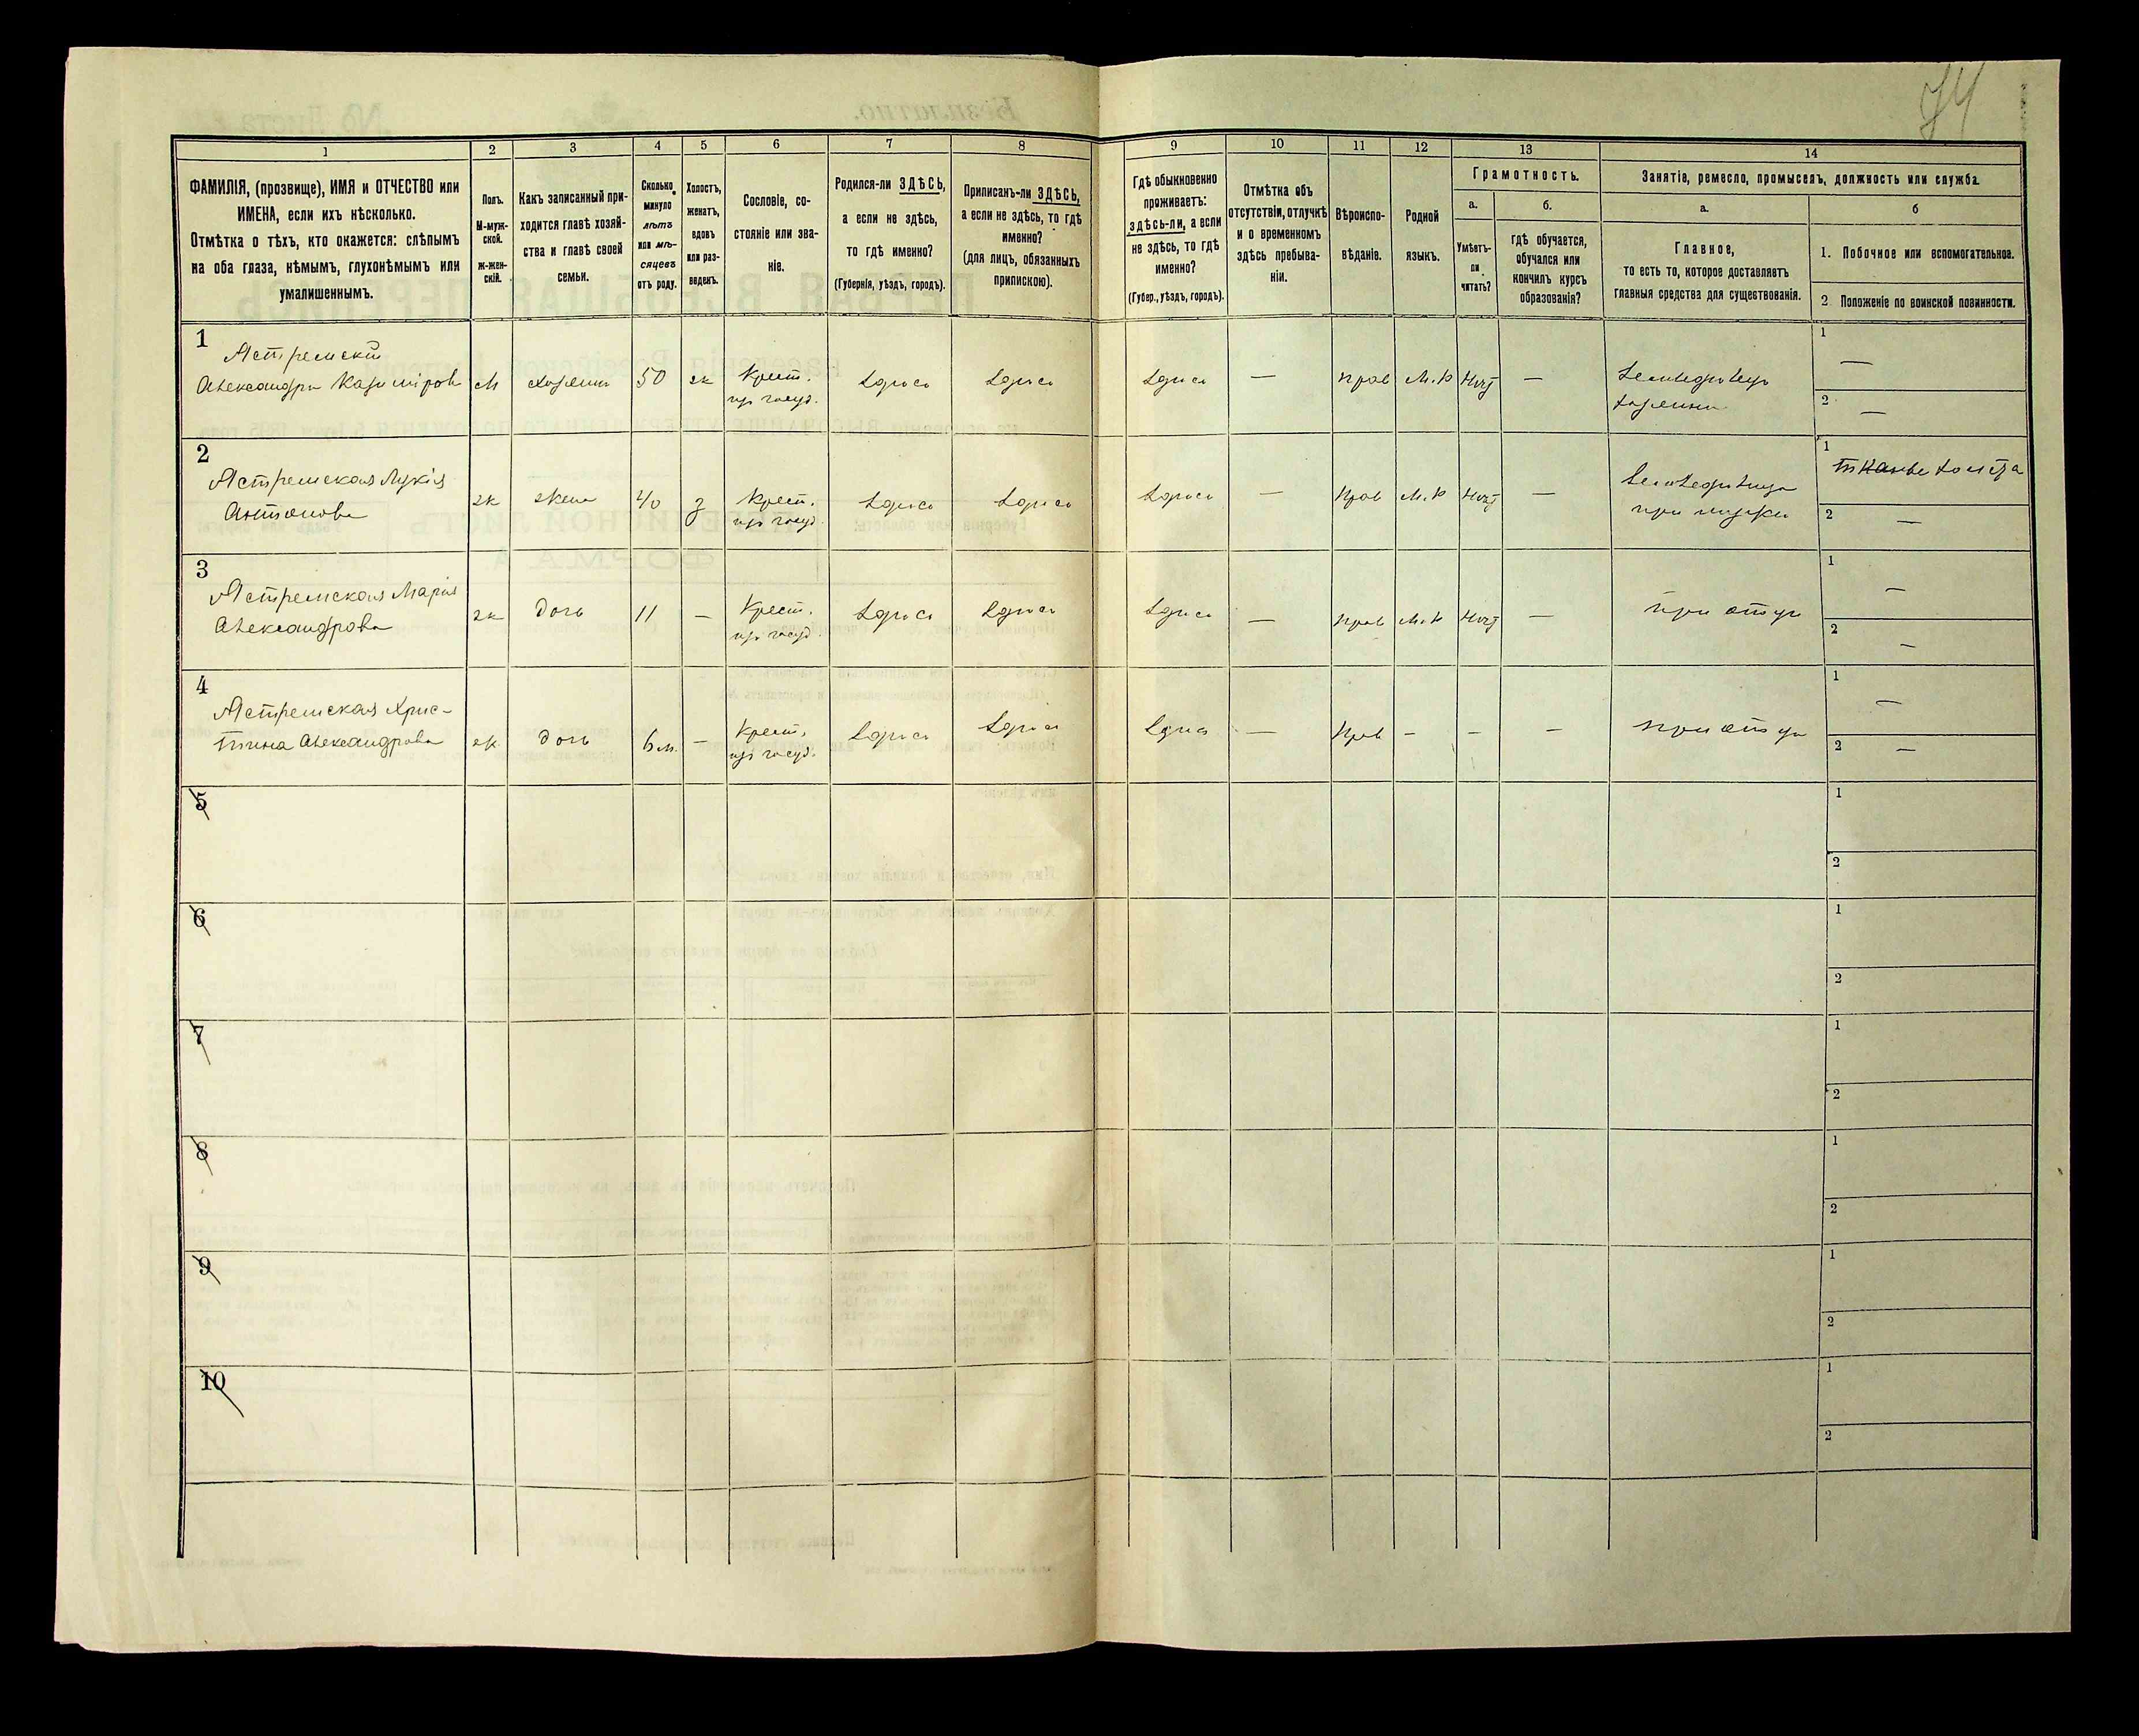 74
1
2
3
4
5
6
7
8
9
10
11
12
13
14
ФАМИЛІЯ, (прозвище), ИМЯ и ОТЧЕСТВО или
ИМЕНА, если ихъ нѣсколько.
Отмѣтка о тѣхъ, кто окажется: слѣпымъ
на оба глаза, нѣмымъ, глухонѣмымъ или
умалишеннымъ.
Полъ.
М-муж-
ской.
Ж-жен-
скій.
Какъ записанный при-
ходится главѣ хозяй-
ства и главѣ своей
семьи.
Сколько
минуло
лѣтъ
или мѣ-
сяцевъ
отъ роду.
Холостъ,
женатъ,
вдовъ
или раз-
веденъ.
Сословіе, со-
стояніе или зва-
ніе.
Родился-ли ЗДѢСЬ,
а если не здѣсь,
то гдѣ именно?
(Губернія, уѣздъ, городъ).
Приписанъ-ли ЗДѢСЬ,
а если не здѣсь, то гдѣ
именно?
(для лицъ, обязанныхъ
припискою).
Гдѣ обыкновенно
проживаетъ:
здѣсь-ли, а если
не здѣсь, то гдѣ
именно?
(Губер., уѣздъ, городъ).
Отмѣтка объ
отсутствіи, отлучкѣ
и о временномъ
здѣсь пребыва-
ніи.
Вѣроиспо-
вѣданіе.
Родной
языкъ.
Грамотность.
а.
Умѣетъ-
ли
читать?
б.
гдѣ обучается,
обучался или
кончилъ курсъ
образованія?
Занятіе, ремесло, промыселъ, должность или служба.
а.
Главное,
то есть то, которое доставляетъ
главныя средства для существованія.
б
1. Побочное или вспомогательное.
2. Положеніе по воинской повинности.
1
Ястремскій
Александръ Казиміров М хозяинъ 50 ж Крест. здѣсь здѣсь здѣсь — прав М.Р — 1 —
из госуд. 2 —
2
Ястремская Лукія
Антонова ж жена 40 з Крест. здѣсь здѣсь здѣсь — Прав М.Р — 1 тканье холста
из госуд. при мужѣ 2 —
3
Ястремская Марія
Александрова ж дочь 11 — Крест. здѣсь здѣсь здѣсь — прав М.Р — при отцѣ 1 —
из госуд. 2 —
4
Ястремская Хрис-
тина Александрова ж дочь 6 м. — Крест. здѣсь здѣсь здѣсь — Прав — — — при отцѣ 1 —
из госуд. 2 —
5
1
2
6
1
2
7
1
2
8
1
2
9
1
2
10
1
2